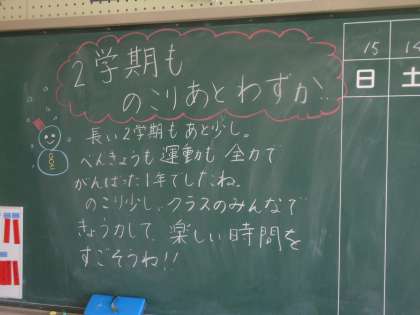 2学期も
のこりあとわずか…
長い2学期もあと少し。
べんきょうも運動も全力で
がんばった1年でしたね。
のこり少し、クラスのみんなで
きょう力して、楽しい時間を
すごそうね!!
15
14
日
土